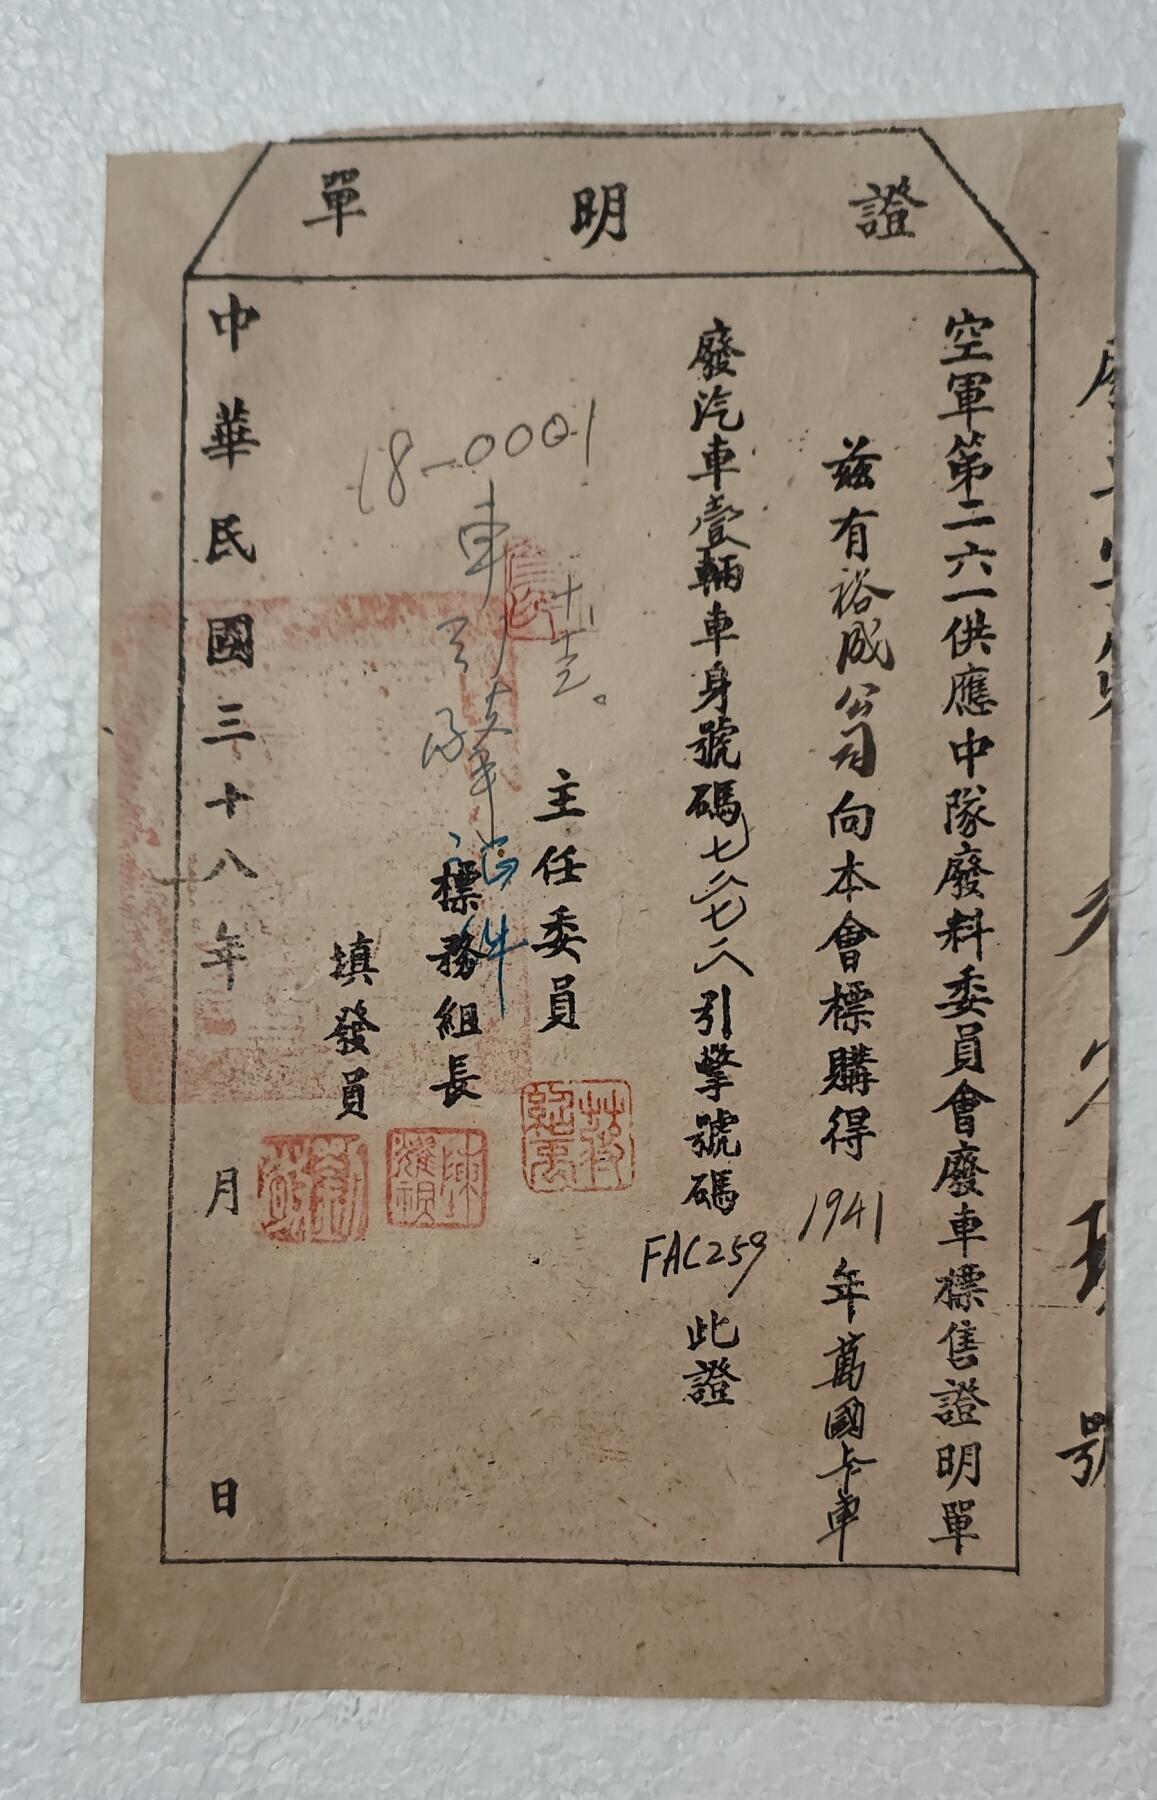 證明單
空軍第二六一供應中隊廢料委員會廢車標售證明單
茲有裕成公司向本會標購得1941年萬國卡車
廢汽車壹輛車身號碼七六七八引擎號碼FAC259此證
主任委員
標務組長
填發員
中華民國三十八年月日
18-0001
車
證件
號